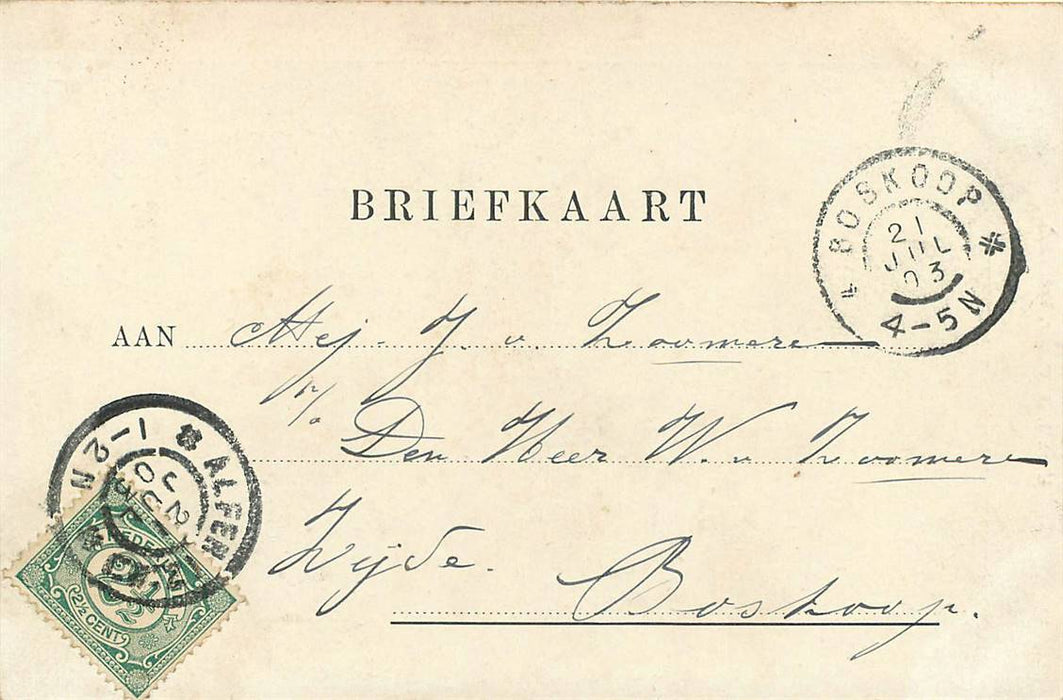 BRIEFKAART
BOSKOOP
21
JUL
03
4-5N
AAN Mej. J. v. Zoomere
p/o
Den Heer W. v Zoomere
Zijde.
Boskoop.
ALFEN
1-2N
21
JUL
03
NEDERLAND
2½
2½ CENT